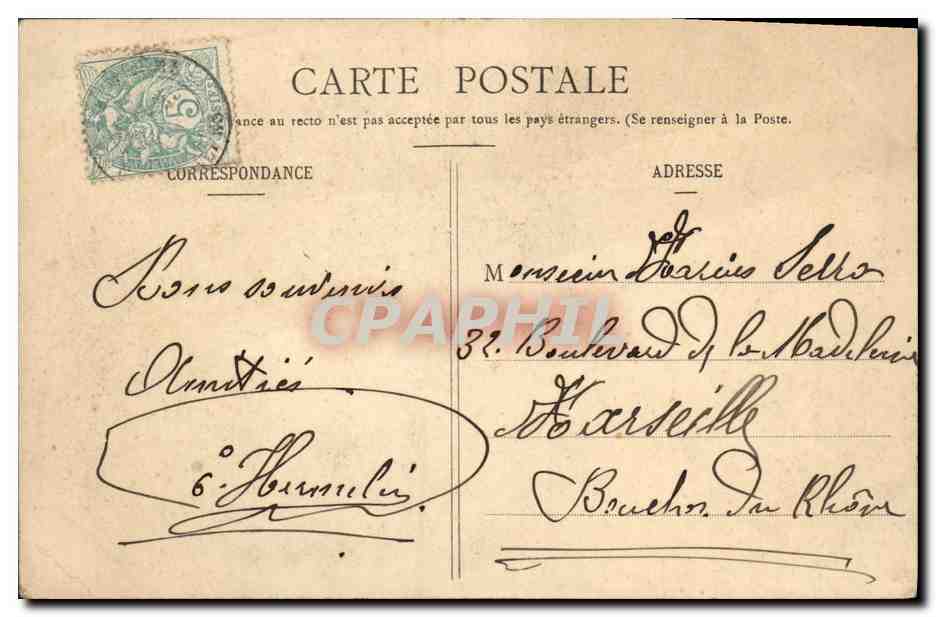 CARTE POSTALE
ance au recto n'est pas acceptée par tous les pays étrangers. (Se renseigner à la Poste.
CORRESPONDANCE
Bons souvenirs
Amitiés
Hermelin
ADRESSE
Monsieur Marius Serra
32. Boulevard de la Madeleine
Marseille
Bouches du Rhône
5c
CPAPHIL